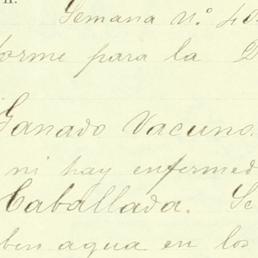 Semana N.º 40
orme para la D
Ganado Vacuno.
ni hay enfermed
Caballada. Se
ben agua en los